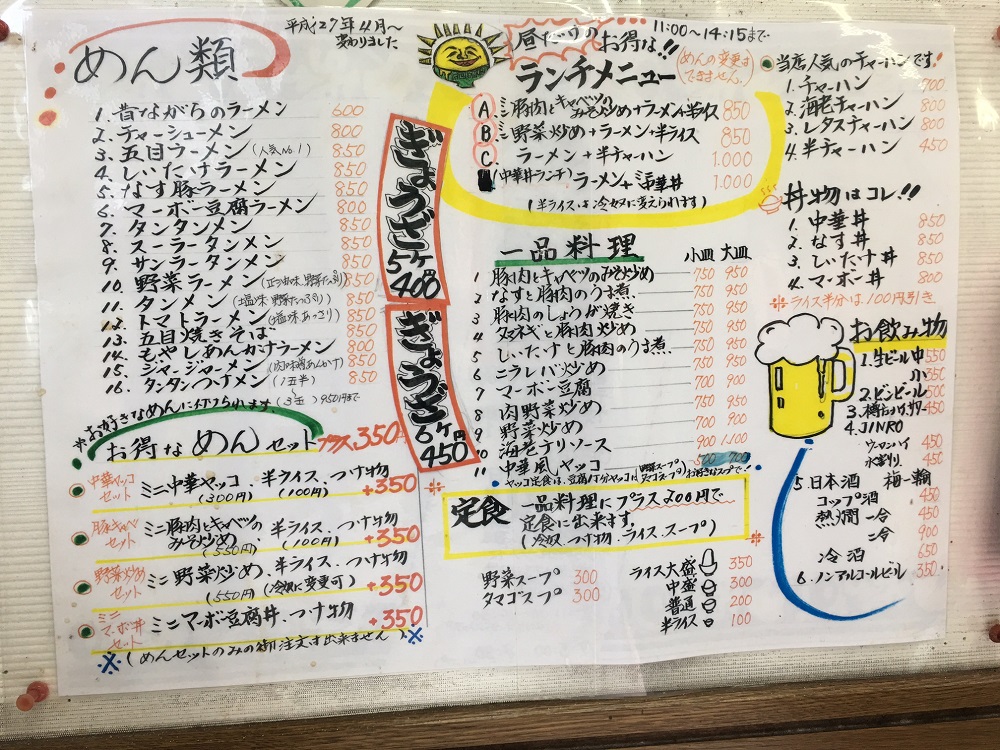 めん類
平成27年4月～
変わりました
1. 昔ながらのラーメン 600
2. チャーシューメン 800
3. 五目ラーメン (人気No.1) 850
4. しいたけラーメン 850
5. なす豚ラーメン 850
6. マーボー豆腐ラーメン 800
7. タンタンメン 850
8. スーラータンメン 850
9. サンラータンメン 850
10. 野菜ラーメン 850
11. タンメン 850
12. トマトラーメン (塩味あっさり) 850
13. 五目焼きそば 850
14. もやしあんかけラーメン 800
15. ジャージャーメン (肉味噌あんかけ) 850
16. タンタンつけメン (1.5半) 850
(3玉) 950円まで
*お好きなめんに付けられます。
お得なめんセットプラス350
中華ヤッコセット ミニ中華ヤッコ、半ライス、つけ物 +350
(300円) (100円)
豚キャベセット ミニ豚肉とキャベツのみそ炒め、半ライス、つけ物 +350
(550円) (100円)
野菜炒めセット ミニ野菜炒め、半ライス、つけ物 +350
(550円) (冷奴に変更可)
ミニマーボ丼セット ミニマーボ豆腐丼、つけ物 +350
※(めんセットのみの御注文は出来ません)※
ぎょうざ
5ケ
400円
ぎょうざ
6ケ
450円
昼だけのお得な!!
11:00～14:15まで
ランチメニュー
(めんの変更はできません。)
A ミニ豚肉とキャベツのみそ炒め+ラーメン+半ライス 850
B ミニ野菜炒め+ラーメン+半ライス 850
C. ラーメン+半チャーハン 1.000
(中華丼ランチ) ラーメン+ミニ中華丼 1.000
(半ライスは冷奴に変えられます)
一品料理 小皿 大皿
1 豚肉とキャベツのみそ炒め 750 950
2 なすと豚肉のうま煮 750 950
3 豚肉のしょうが焼き 750 950
4 タマネギと豚肉炒め 750 950
5 しいたけと豚肉のうま煮. 750 950
6 ニラレバ炒め 750 950
7 マーボー豆腐 700 900
8 肉野菜炒め 750 950
9 野菜炒め 700 900
10 海老チリソース 900 1.100
11 中華風ヤッコ 500 700
定食 一品料理にプラス200円で
定食に出来ます。
(冷奴、つけ物、ライス、スープ)
野菜スープ 300
タマゴスープ 300
ライス大盛 350
中盛 300
普通 200
半ライス 100
当店人気のチャーハンです!
1. チャーハン 700
2. 海老チャーハン 800
3. レタスチャーハン 800
4. 半チャーハン 450
丼物はコレ!!
1. 中華丼 850
2. なす丼 850
3. しいたけ丼 850
4. マーボー丼 800
※ライス半分は100円引き
お飲み物
1. 生ビール中 550
小 350
2. ビンビール 500
3. 樽詰サワー 450
4. JINRO
ウーロンハイ 450
水割り. 450
5. 日本酒 福一輪
コップ酒 450
熱燗 一合 450
二合 900
冷酒 650
6. ノンアルコールビール 350